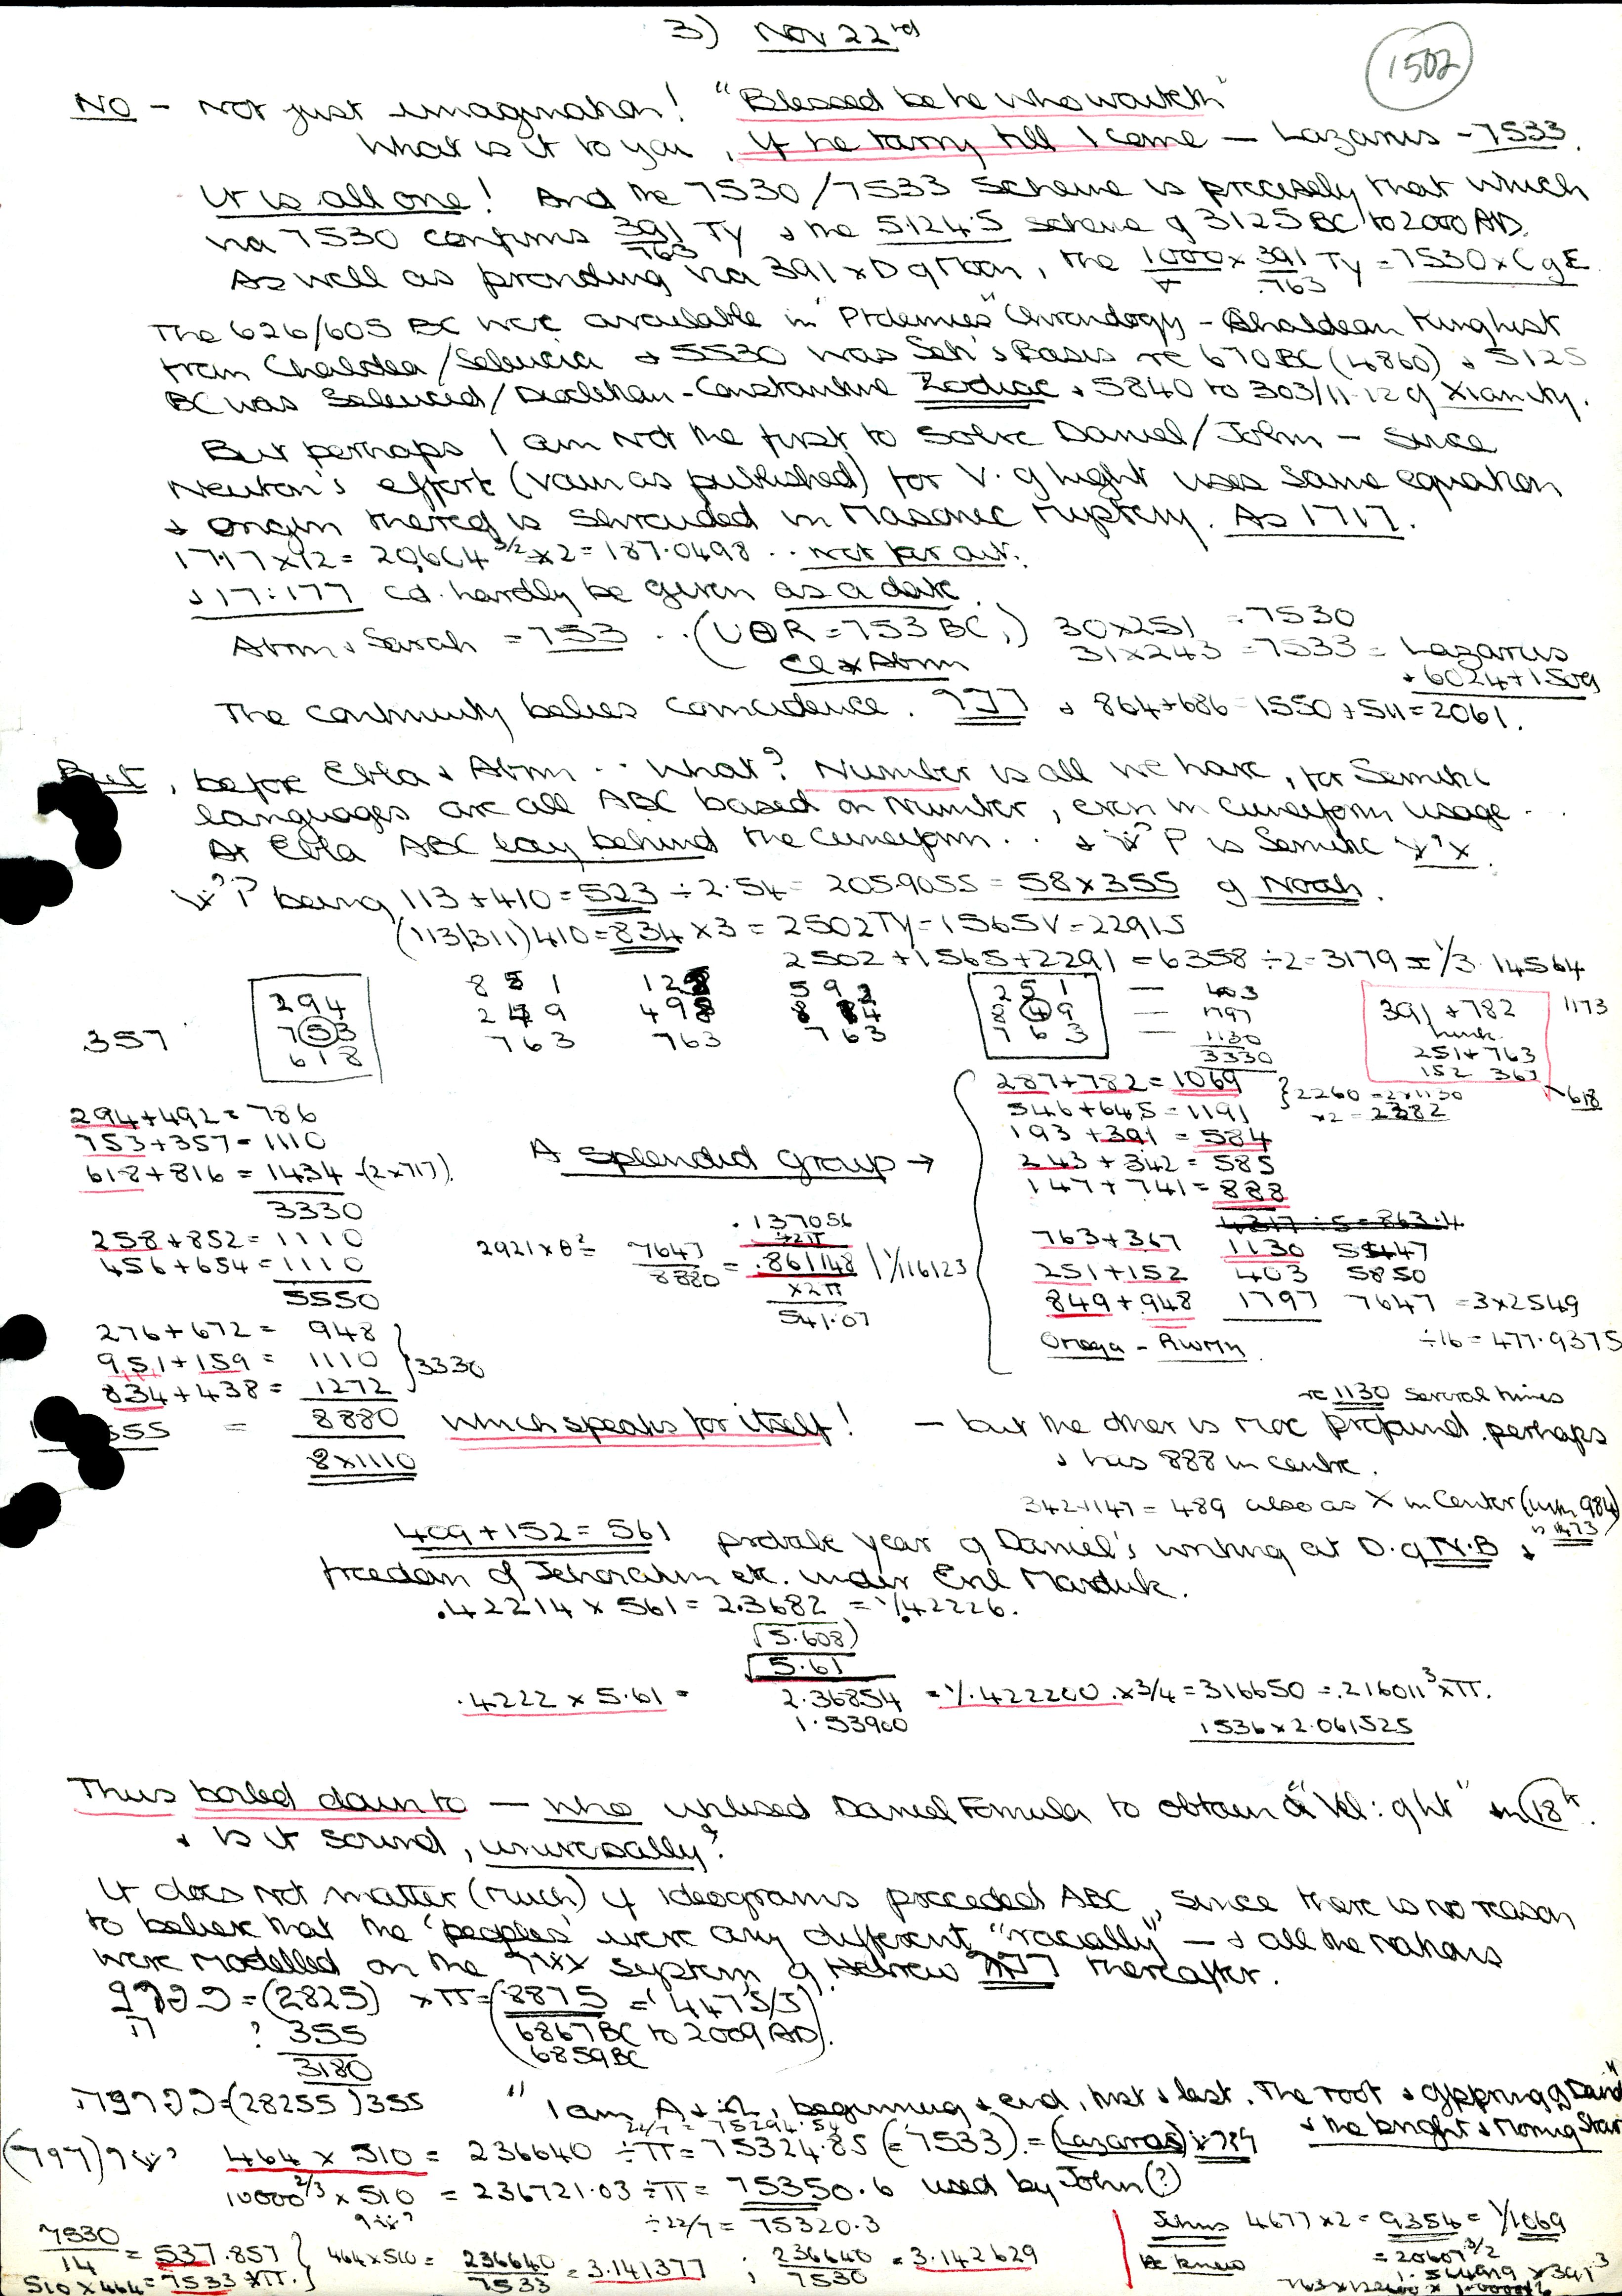 3) Nov 22nd
1502
NO - Not just imagination! "Blessed be he who waiteth"
What is it to you, if he tarry till I come - Lazarus - 7533.
It is all one! And the 7530/7533 scheme is precisely that which
via 7530 confirms 391/763 Ty & the 5124.5 scheme of 3125 BC to 2000 AD.
As well as providing via 391 x D of Moon, the 1000 x 391/.763 Ty = 7530 x C of E
The 626/605 BC were available in "Ptolemies" Chronology - Chaldean Kinglist
from Chaldea/Seleucia & 5530 was Seth's Basis re 670BC (4860) & 5125
BC was Seleucid/Diocletian-Constantine Zodiac & 5840 to 303/11-12 of Xianity.
But perhaps I am not the first to solve Daniel/John - since
Newton's effort (vain as published) for V. of light uses same equation
& origin thereof is shrouded in Masonic Mystery. As 1717.
1717 x 12 = 20,604 3/2 x 2 = 187.0498 .. not far out.
& 17:177 cd. hardly be given as a date.
Abrm & Sarah = 753 .. (UOR = 753 BC,) 30x251 = 7530
31x243 = 7533 = Lazarus
Cl x Abrm
+ 6024+1509
The continuity belies coincidence. & 864+686 = 1550 + 511 = 2061.
But, before Ebla & Abrm .. What? Number is all we have, for Semitic
languages are all ABC based on Number, even in cuneiform usage ...
At Ebla ABC lay behind the Cuneiform .. & P is Semitic
being 113 + 410 = 523 ÷ 2.54 = 205.9055 = 58 x 355 of Noah.
(113/311) 410 = 834 x 3 = 2502 TY = 1565V = 2291S
2502 + 1565 + 2291 = 6358 ÷ 2 = 3179 = 1/3.14564
357
294
753
618
8 5 1
2 7 9
7 6 3
128
498
763
592
763
251
849
763
- 403
- 1797
- 1130
3330
391 + 782
link
251 + 763
152 367
1173
618
294+492 = 786
753+357 = 1110
618+816 = 1434 - (2x717).
3330
258+852 = 1110
456+654 = 1110
5550
276+672 = 948
951+159 = 1110
834+438 = 1272
}3330
555 = 8880
8x1110
which speaks for itself!
A splendid group →
2921 x θ² = 7647/8880 = .861148 | 1/116123
.137056
÷2π
x2π
541.07
287+782 = 1069
546+645 = 1191
193+391 = 584
243+342 = 585
147+741 = 888
}2260 = 2x1130
x2 = 2382
4317 ÷ 5 = 863.4
763+367 1130 5447
251+152 403 5850
849+948 1797 7647 = 3x2549
÷16 = 477.9375
Omega - Rwrm
re 1130 several times
- but the other is more profound, perhaps
& has 888 in centre.
342+147 = 489 also as X in Center (with 984)
is 1473
409+152 = 561 probable year of Daniel's writing at D. of N.B &
freedom of Jehoiakim etc. under Evil Marduk.
.42214 x 561 = 2.3682 = 1/.42226.
√5.608)
√5.61
.4222 x 5.61 = 2.36854 = 1/.422200 . x 3/4 = 316650 = .216011³ x π.
1.53900
1536 x 2.061525
Thus boiled down to - who utilised Daniel Formula to obtain a "Vel: of ht" in 18th.
& is it sound, universally?
It does not matter (much) if ideograms preceded ABC, since there is no reason
to believe that the 'peoples' were any different "racially" - & all the nations
were modelled on the system of Hebrew thereafter.
= (2825) x π = (8875 = 4475/5)
? 355
3180
(6867 BC to 2009 AD).
6859 BC
= (28255) 355
"I am A & Ω, beginning & end, first & last. The root & offspring of David
& the bright & Morning Star"
22/7 = 75294.54
(797) 464 x 510 = 236640 ÷ π = 75324.85 (= 7533) = (Lazarus) x 784
10000 2/3 x 510 = 236721.03 ÷ π = 75350.6 used by John (?)
÷ 22/7 = 75320.3
7530/14 = 537.857
510 x 464 = 7533 x π.
464x510 = 236640/7533 = 3.141377 ; 236640/7530 = 3.142629
4677 x 2 = 9354 = 1/1069
he knew
= 20607 3/2